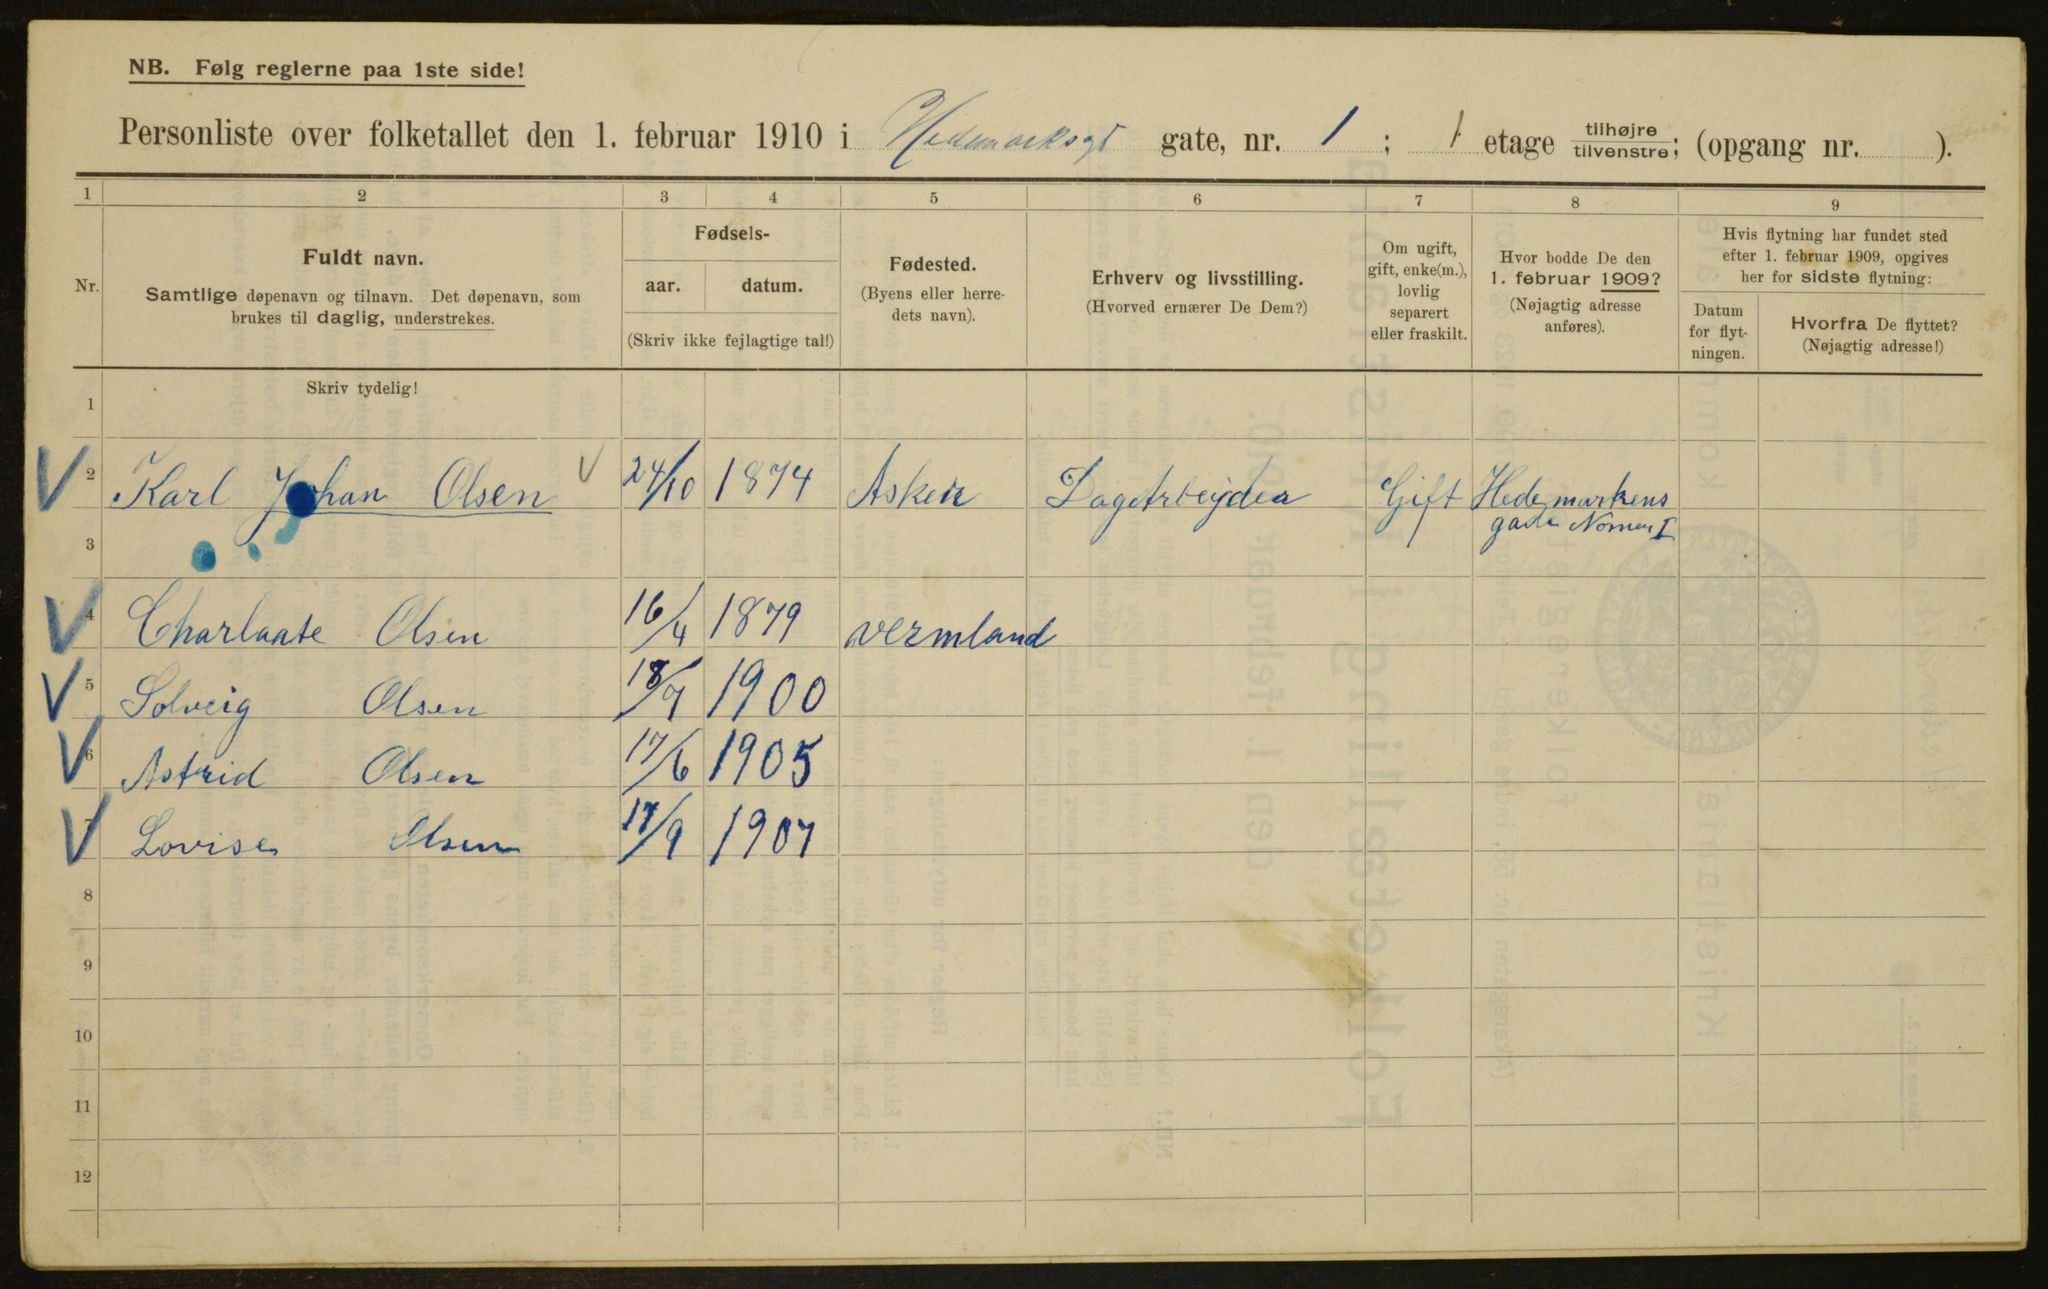 NB. Følg reglerne paa 1ste side!
Personliste over folketallet den 1. februar 1910 i Hedemarksgt gate, nr. 1 ; 1 etage tilhøjre tilvenstre; (opgang nr. ).
1 2 3 4 5 6 7 8 9
Nr.
Fuldt navn.
Samtlige døpenavn og tilnavn. Det døpenavn, som
brukes til daglig, understrekes.
Fødsels-
aar. datum.
(Skriv ikke fejlagtige tal!)
Fødested.
(Byens eller herre-
dets navn).
Erhverv og livsstilling.
(Hvorved ernærer De Dem?)
Om ugift,
gift, enke(m.),
lovlig
separert
eller fraskilt.
Hvor bodde De den
1. februar 1909?
(Nøjagtig adresse
anføres).
Hvis flytning har fundet sted
efter 1. februar 1909, opgives
her for sidste flytning:
Datum
for flyt-
ningen.
Hvorfra De flyttet?
(Nøjagtig adresse!)
Skriv tydelig!
1
2 Karl Johan Olsen 24/10 1874 Asker Dagarbeyder Gift Hedemarkens
gade Nomer I
3
4 Charlaate Olsen 16/4 1879 vermland
5 Solveig Olsen 18/7 1900
6 Astrid Olsen 17/6 1905
7 Lovise Olsen 17/9 1907
8
9
10
11
12